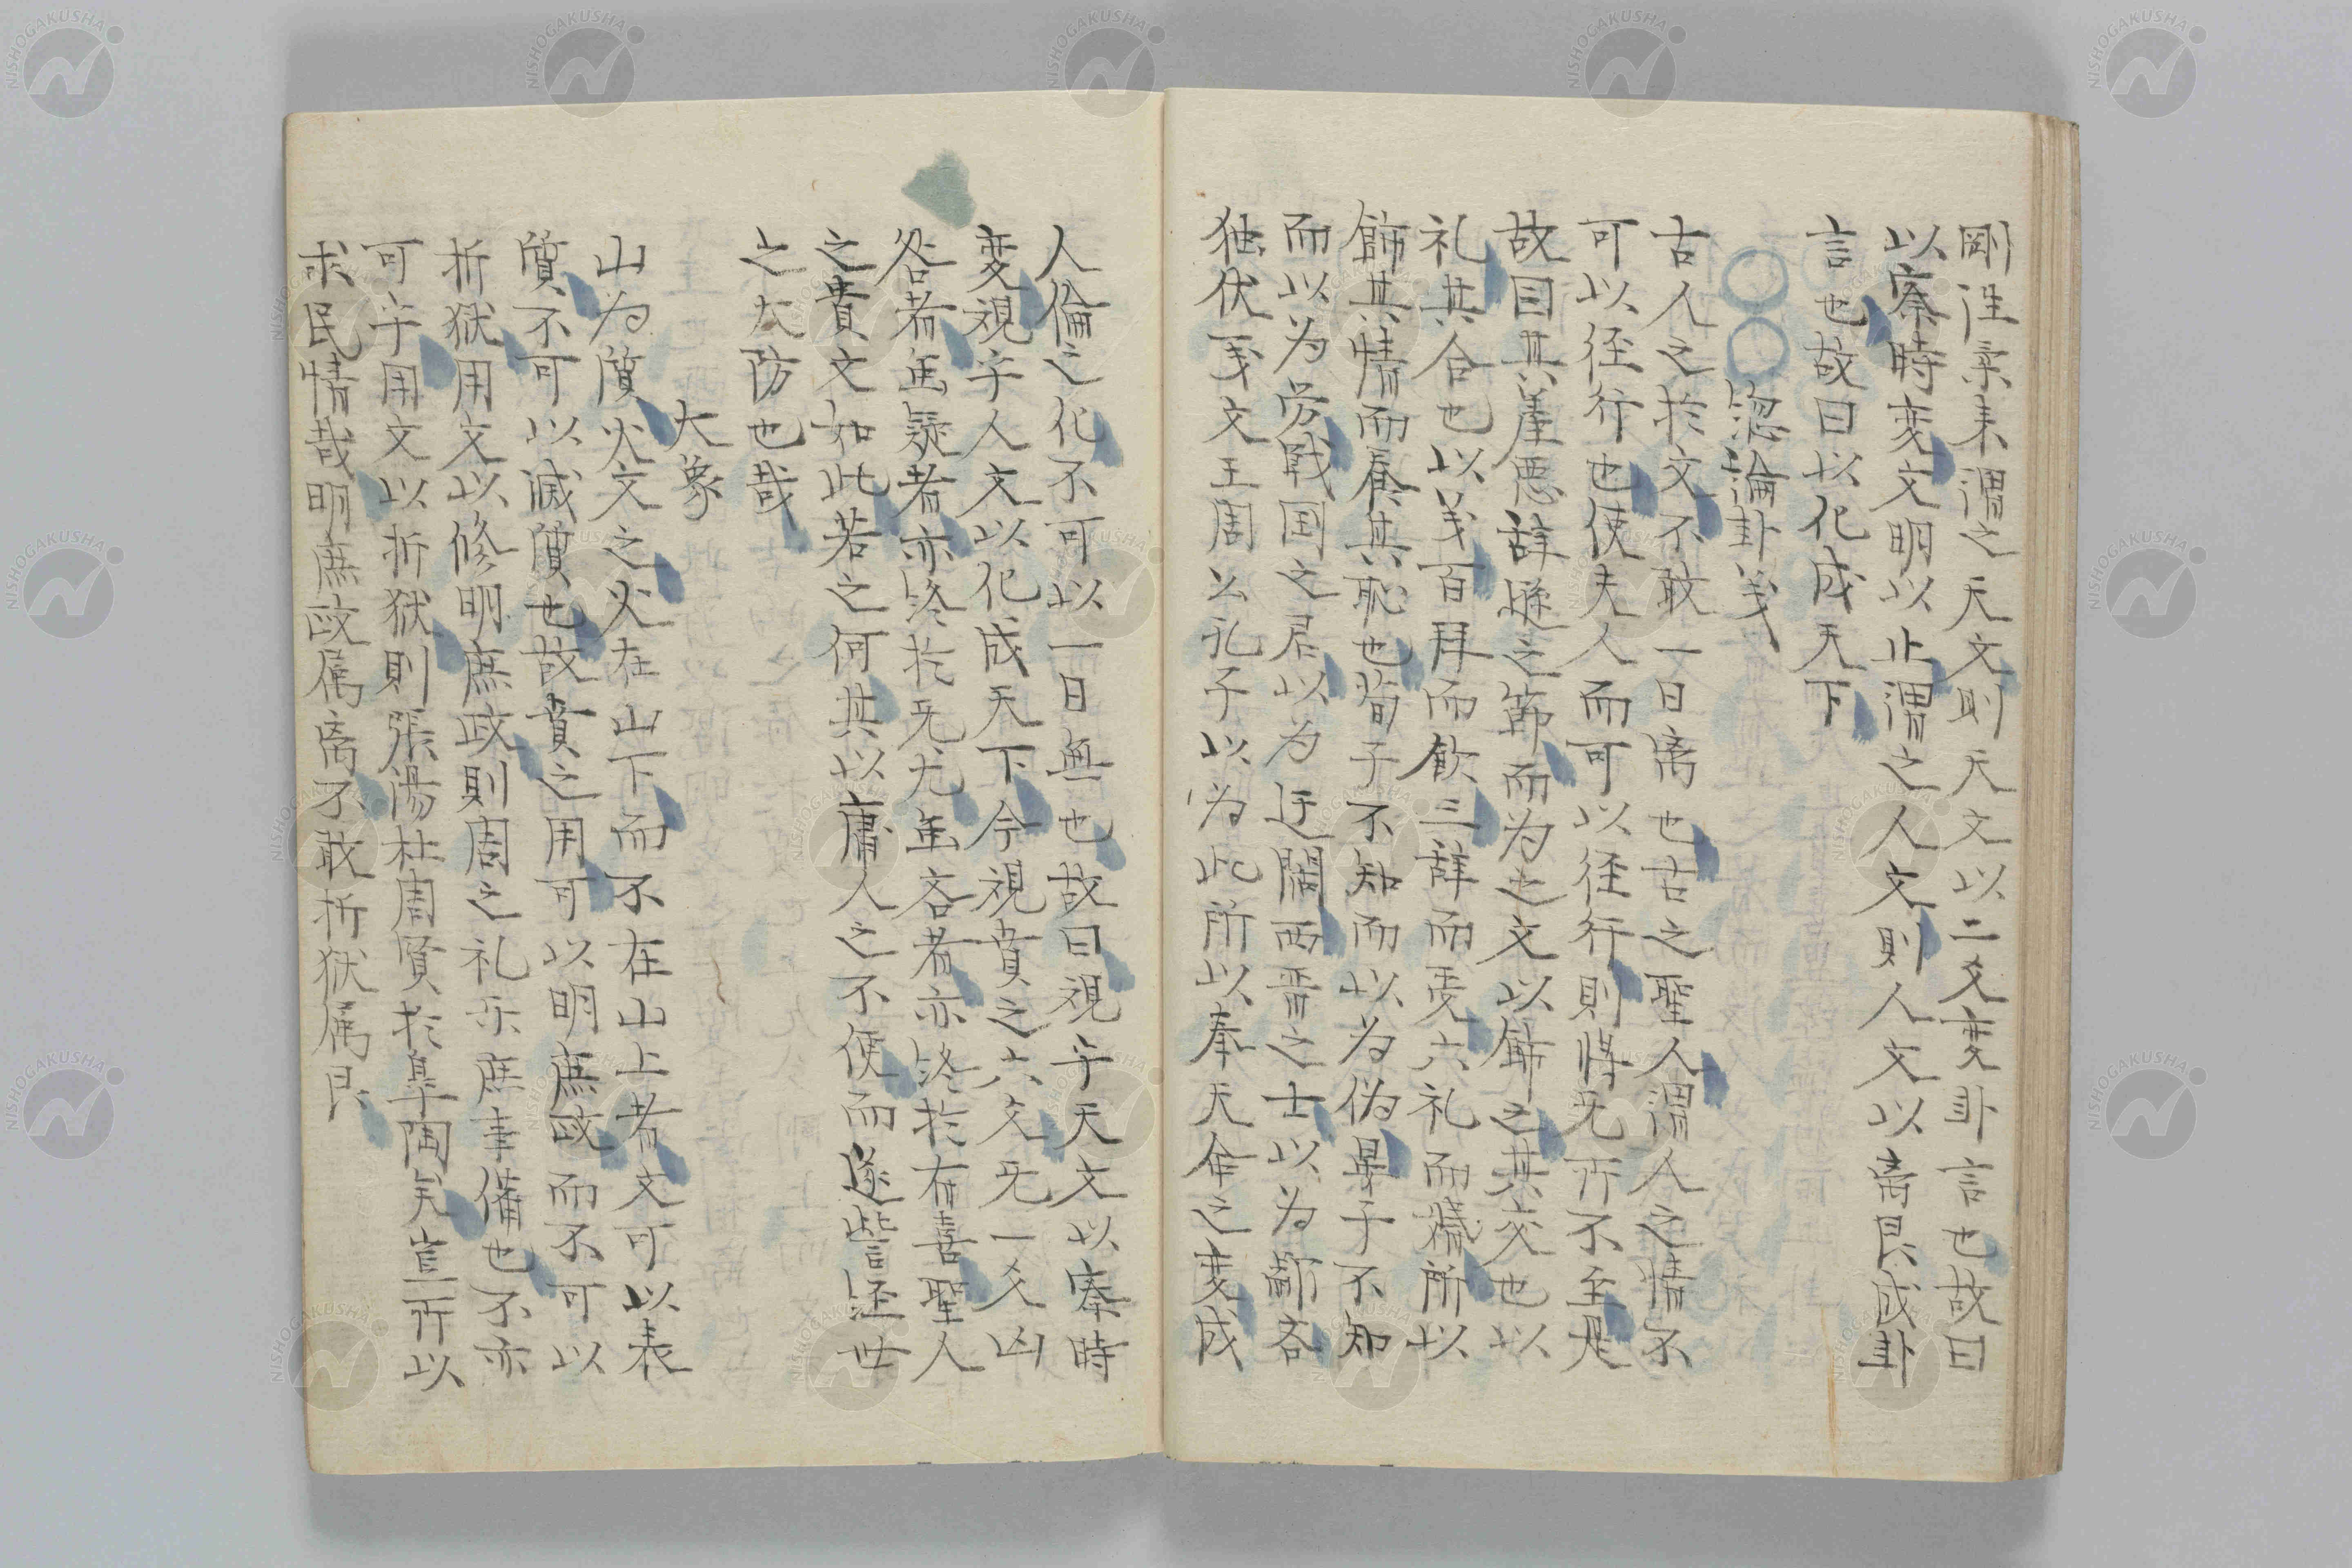 剛往柔来謂之天文則天文以二爻変卦言也故曰
以察時変文明以止謂之人文則人文以离艮成卦
言也故曰以化成天下
○○ 総論卦義
古人之於文不敢一日离也古之聖人謂人之情不
可以径行也使夫人而可以径行則将无所不至是
故因其羞悪辞遜之節而为之文以飾之其交也以
礼其合也以義百拝而飲三辞而受六礼而婚所以
飾其情而養其恥也荀子不知而以为偽晏子不知
而以为労戦国之君以为迂闊西晋之士以为鄙吝
独伏羲文王周公孔子以为此所以奉天命之変成
人倫之化不可以一日無也故曰視乎天文以察時
変視乎人文以化成天下今視賁之六爻无一爻凶
咎者雖疑者亦終於无尤雖吝者亦終於有喜聖人
之貴文如此若之何其以庸人之不便而遂訾経世
之大防也哉
大象
山为質火文之火在山下而不在山上者文可以表
質不可以滅質也故賁之用可以明庶政而不可以
折獄用文以修明庶政則周之礼楽庶事備也不亦
可乎用文以折獄則張湯杜周賢於皐陶矣豈所以
求民情哉明庶政属离不敢折獄属艮
NISHOGAKUSHA